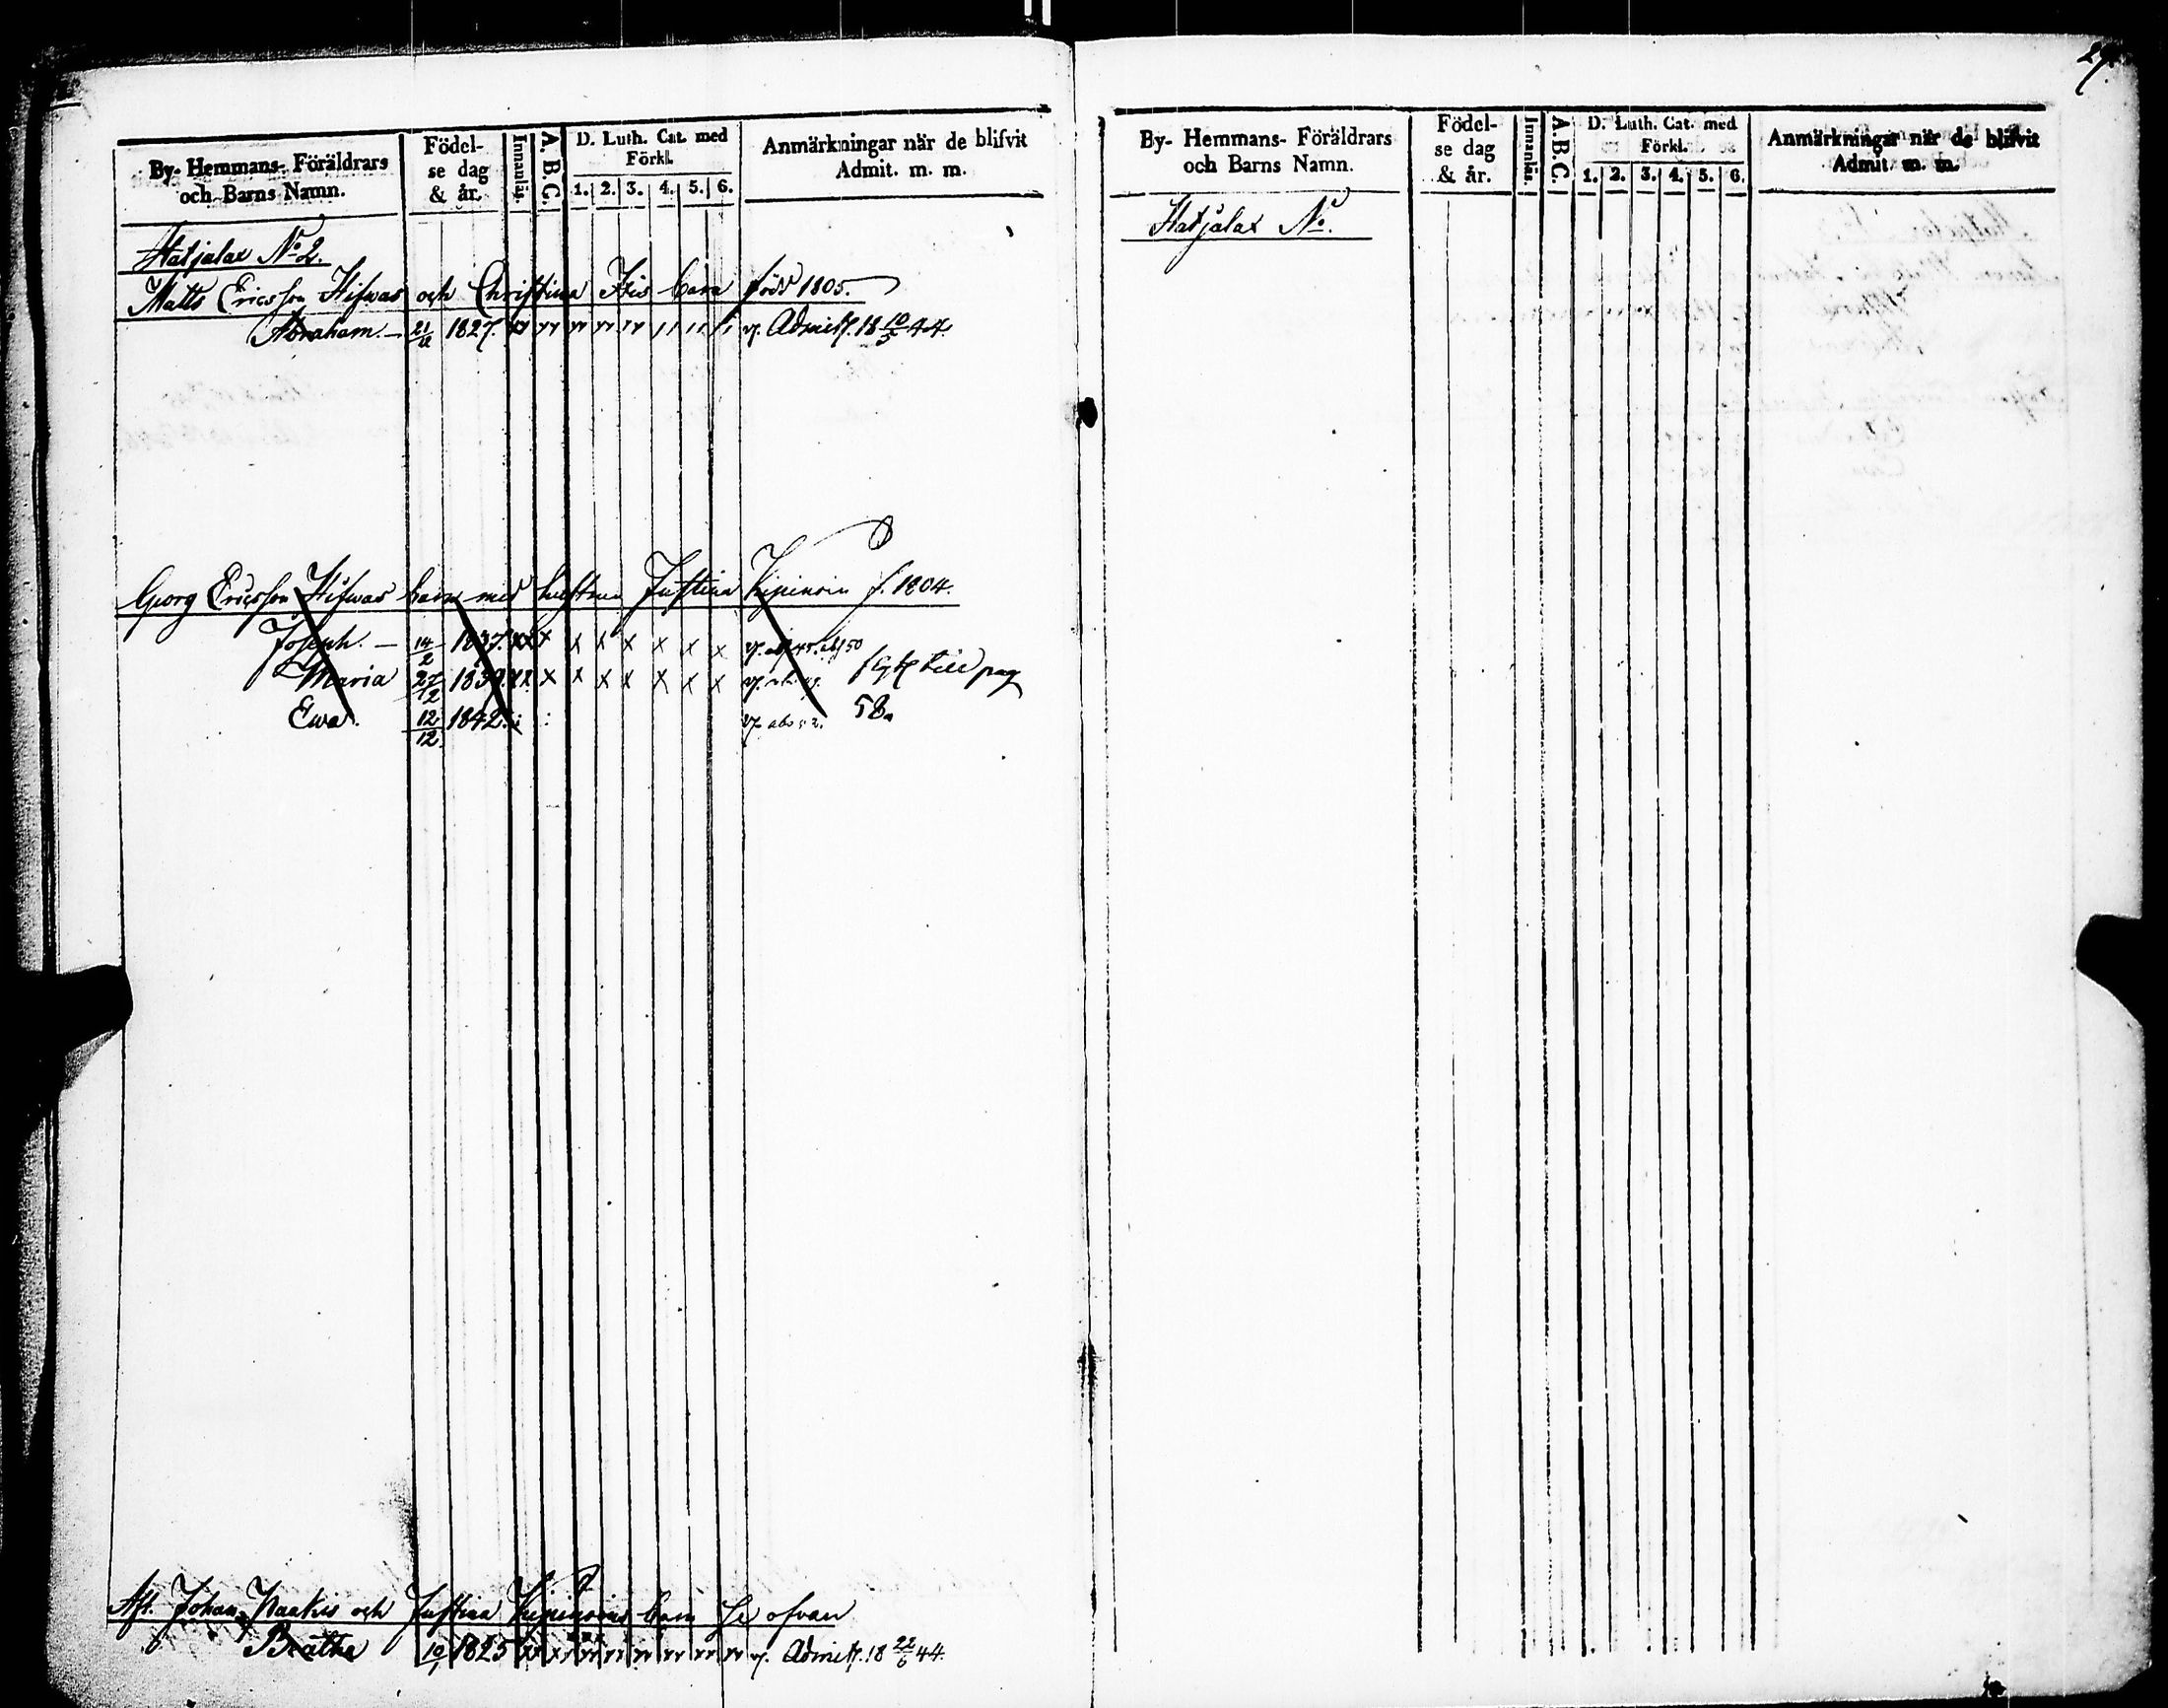 27.
By- Hemmans- Föräldrars och Barns Namn.
Födel- se dag & år.
Innanläs.
A.B.C.
D. Luth. Cat. med Förkl.
1. 2. 3. 4. 5. 6.
Anmärkningar när de blifvit Admit. m. m.
Hatjalax No 2.
Matts Ericsson Hifwas och Christina barn född 1805.
Abraham. — 1827. v. Admitt. 18 10/5 44.
Georg Ericsson Hifwas barn med hustrun Justina f. 1804.
Joseph. — 14/2 1837. xx x x x x x x x
Maria 27/12 1839. xx x x x x x x x
fl till pag
Ewa. 12/12 1842.
58.
Aft. Johan och Justina barn Se ofvan
Beatha 10/1 1825 v. Admitt. 18 22/6 44.
By- Hemmans- Föräldrars och Barns Namn.
Födel- se dag & år.
Innanläs.
A.B.C.
D. Luth. Cat. med Förkl.
1. 2. 3. 4. 5. 6.
Anmärkningar när de blifvit Admit. m. m.
Hatjalax No.